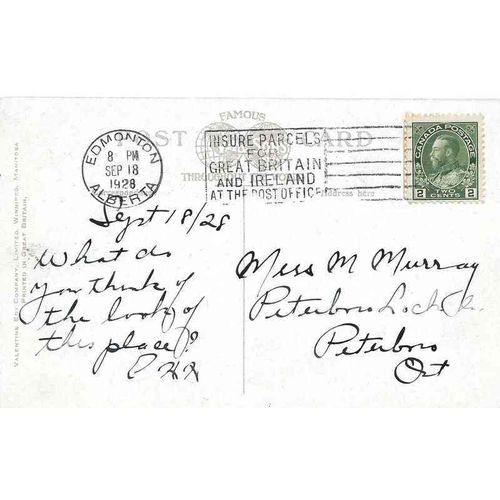 FAMOUS
POST CARD
THROUGH
EDMONTON
8 PM
SEP 18
1928
ALBERTA
INSURE PARCELS
FOR
GREAT BRITAIN
AND IRELAND
AT THE POST OFFICE
CANADA POSTAGE
2 TWO CENTS 2
Address here
VALENTINE EDY COMPANY, LIMITED, WINNIPEG, MANITOBA
PRINTED IN GREAT BRITAIN.
Sept 18/28
What do
you think of
the look of
this place?
Miss M Murray
Peterboro Lock
Peterboro
Ont